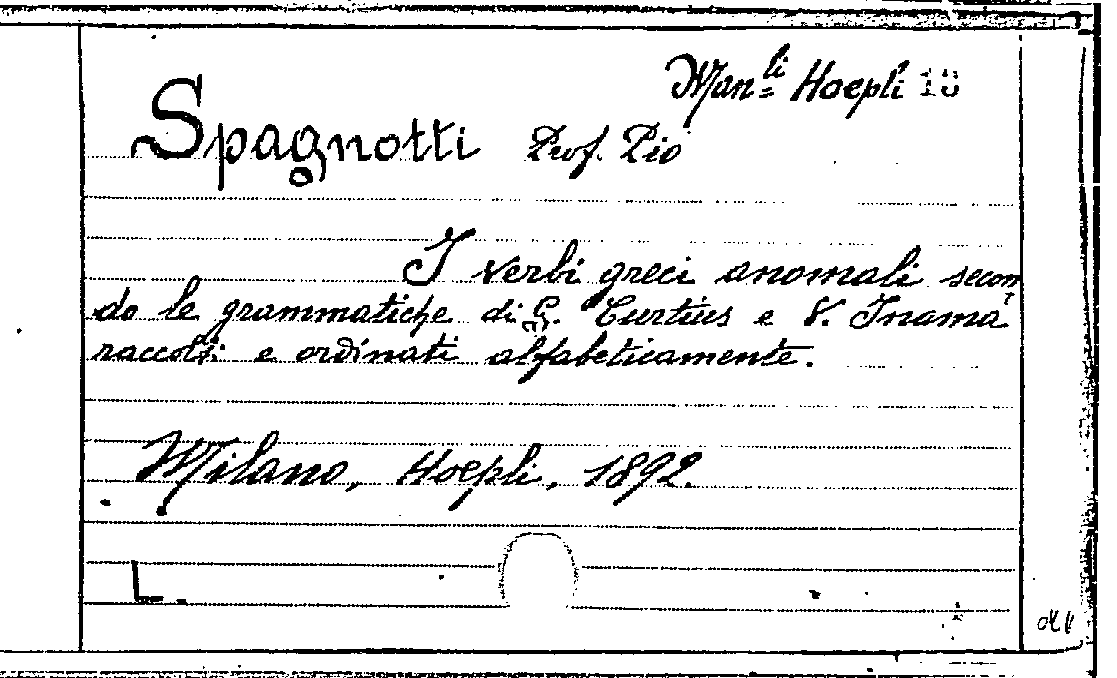 Man.li Hoepli 18
Spagnotti Prof. Pio
I verbi greci anomali secon
do le grammatiche di G. Curtius e V. Inama
raccolti e ordinati alfabeticamente.
Milano, Hoepli, 1892.
L.